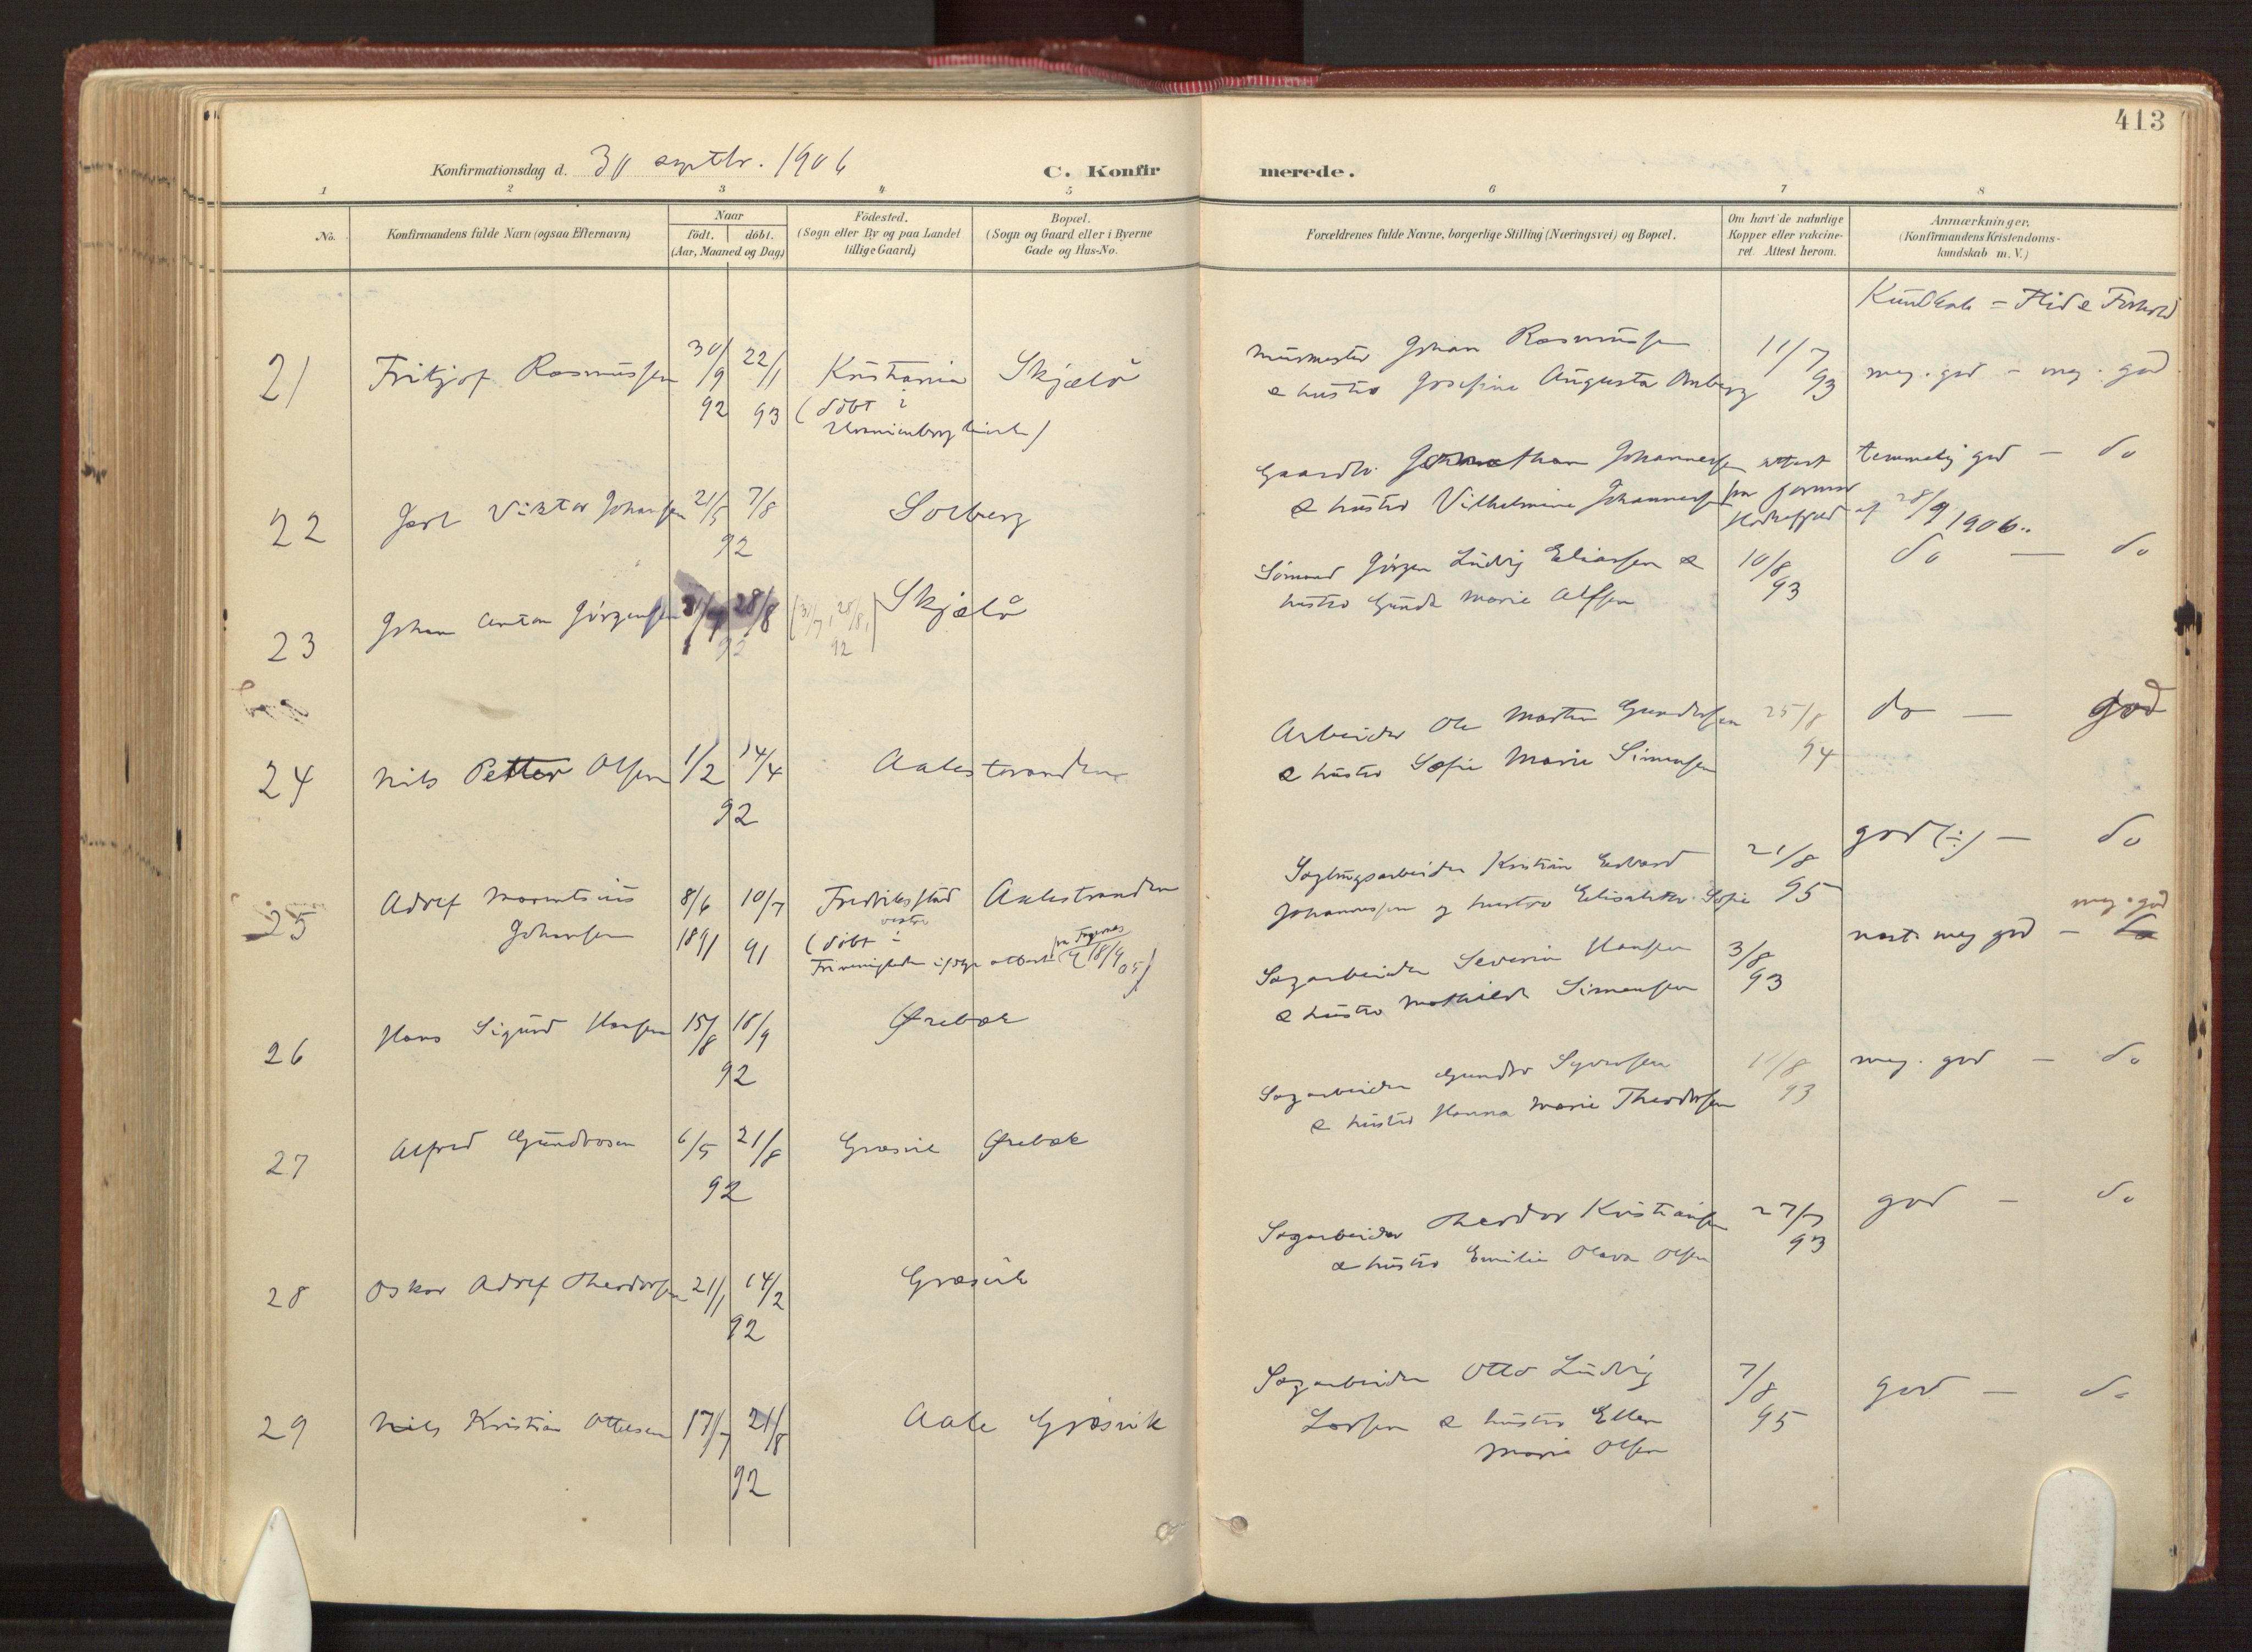 413
Konfirmationsdag d. 30 septbr. 1906
C. Konfirmerede.
1 2 3 4 5 6 7 8
No.
Konfirmandens fulde Navn (ogsaa Efternavn)
Naar
födt. döbt.
(Aar, Maaned og Dag)
Födested.
(Sogn eller By og paa Landet
tillige Gaard)
Bopæl.
(Sogn og Gaard eller i Byerne
Gade og Hus-No.
Forældrenes fulde Navne, borgerlige Stilling (Næringsvei) og Bopæl.
Om havt de naturlige
Kopper eller vakcine-
ret. Attest herom.
Anmærkninger.
(Konfirmandens Kristendoms-
kundskab m. V.)
Kundskab – Flid & Forhold
21 Fritjof Rasmussen 30/9 92 22/1 93 Kristiania Skjælö
(döbt i
Uranienborg kirke)
Murmester Johan Rasmussen
& hustro Josefine Augusta Amberg
11/7 93
meg. god – meg. god
22 Jarl Viktor Johansen 21/5 7/8 92 Solberg
Gaardbr. Johannessen
& hustro Vilhelmine Johannessen
attest
af 28/9 1906.
temmelig god – do
23 Johan Anton Jörgensen 31/7 28/8 92 (31/7, 28/8, 92) Skjælö
Sömand Jörgen Ludvig Eliassen &
hustro Gunda Marie Alfsen
10/8 93
do – do
24 Nils Petter Olsen 1/2 14/4 92 Aalestranden
Arbeider Ole Martin Gundersen
& hustro Sofie Marie Simensen
25/8 94
do – god
25 Adolf Marentsius
Johansen
8/6 1891 10/7 91 Fredrikstad Aalestranden
(döbt i vestre
Frimenigheden ifölge attest 18/9 05)
Kristian Edvard
Johannessen og hustro Elisabeth Sofie
21/8 95
god (÷) – do
26 Hans Sigurd Hansen 15/8 18/9 92 Ørebæk
Sagarbeider Severin Hansen
& hustro Mathilde Simensen
3/8 93
næst. meg god – meg. god
27 Alfred Gundrosen 6/5 21/8 92 Græsvik Ørebæk
Sagarbeider Gundro Syversen
& hustro Hanna Marie Theodorsen
11/8 93
meg. god – do
28 Oskar Adolf Theodorsen 21/1 14/2 92 Græsvik
Sagarbeider Theodor Kristiansen
& hustro Emilie Olava Olsen
27/7 93
god – do
29 Nils Kristian Ottesen 17/7 21/8 92 Aale Græsvik
Sagarbeider Otto Ludvig
Larsen & hustro Ellen
Marie Olsen
7/8 95
god – do